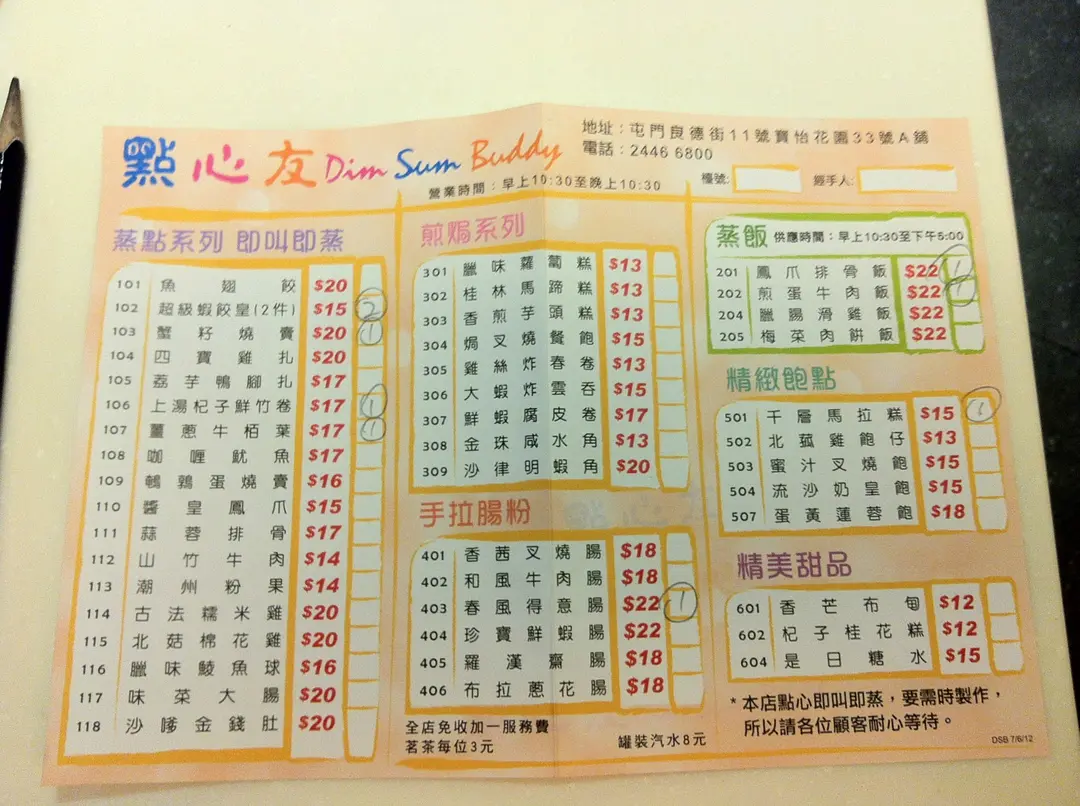 點心友 Dim Sum Buddy
地址：屯門良德街11號寶怡花園33號A舖
電話：2446 6800
營業時間：早上10:30至晚上10:30
檯號:
經手人:
蒸點系列 即叫即蒸
101 魚翅餃 $20
102 超級蝦餃皇(2件) $15 2
103 蟹籽燒賣 $20 1
104 四寶雞扎 $20
105 荔芋鴨腳扎 $17
106 上湯杞子鮮竹卷 $17 1
107 薑蔥牛栢葉 $17 1
108 咖喱魷魚 $17
109 鵪鶉蛋燒賣 $16
110 醬皇鳳爪 $15
111 蒜蓉排骨 $17
112 山竹牛肉 $14
113 潮州粉果 $14
114 古法糯米雞 $20
115 北菇棉花雞 $20
116 臘味鯪魚球 $16
117 味菜大腸 $20
118 沙嗲金錢肚 $20
煎焗系列
301 臘味蘿蔔糕 $13
302 桂林馬蹄糕 $13
303 香煎芋頭糕 $13
304 焗叉燒餐飽 $15
305 雞絲炸春卷 $13
306 大蝦炸雲吞 $15
307 鮮蝦腐皮卷 $17
308 金珠咸水角 $13
309 沙律明蝦角 $20
手拉腸粉
401 香茜叉燒腸 $18
402 和風牛肉腸 $18
403 春風得意腸 $22 1
404 珍寶鮮蝦腸 $22
405 羅漢齋腸 $18
406 布拉蔥花腸 $18
全店免收加一服務費
茗茶每位3元
罐裝汽水8元
蒸飯 供應時間：早上10:30至下午5:00
201 鳳爪排骨飯 $22 1
202 煎蛋牛肉飯 $22 1
204 臘腸滑雞飯 $22
205 梅菜肉餅飯 $22
精緻飽點
501 千層馬拉糕 $15 1
502 北菰雞飽仔 $13
503 蜜汁叉燒飽 $15
504 流沙奶皇飽 $15
507 蛋黃蓮蓉飽 $18
精美甜品
601 香芒布甸 $12
602 杞子桂花糕 $12
604 是日糖水 $15
*本店點心即叫即蒸，要需時製作，
所以請各位顧客耐心等待。
DSB 7/6/12